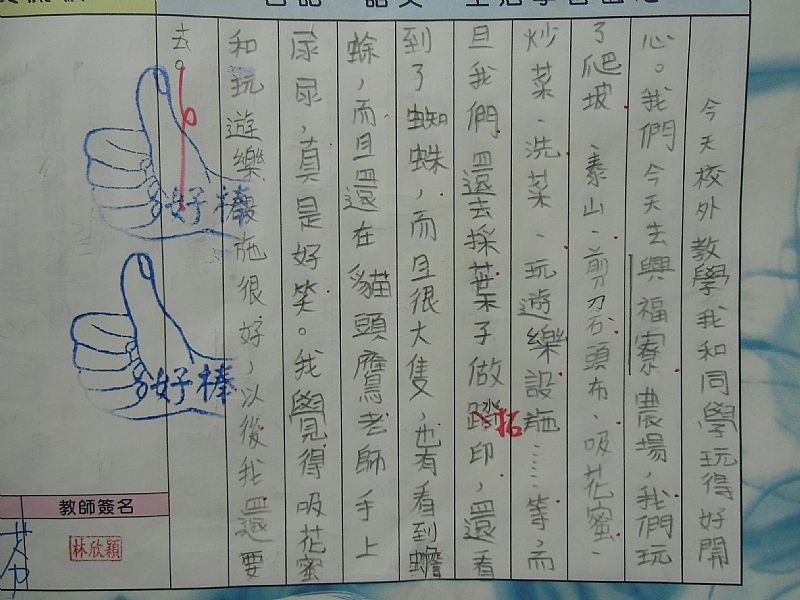 今天校外教學我和同學玩得好開
心。我們今天去興福寮農場,我們玩
了爬坡、泰山、剪刀石頭布、吸花蜜、
炒菜、洗菜、玩遊樂設施……等,而
且我們還去採葉子做踏印,還看
拓
到了蜘蛛,而且很大隻,也有看到蟾
蜍,而且還在貓頭鷹老師手上
尿尿,真是好笑。我覺得吸花蜜
和玩遊樂設施很好,以後我還要
去。
好棒
好棒
教師簽名
林欣穎